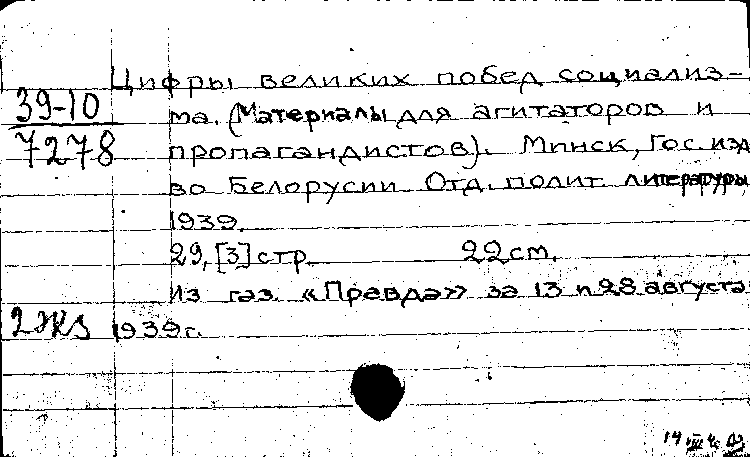 Цифры великих побед социализ-
39-10
ма. (Материалы для агитаторов и
7278
пропагандистов). Минск, Гос. изд
во Белорусии Отд. полит литературы,
1939.
29, [3] стр. 22 см.
Из газ. «Правда» за 13 и 28 августа
2 экз 1939 г.
14